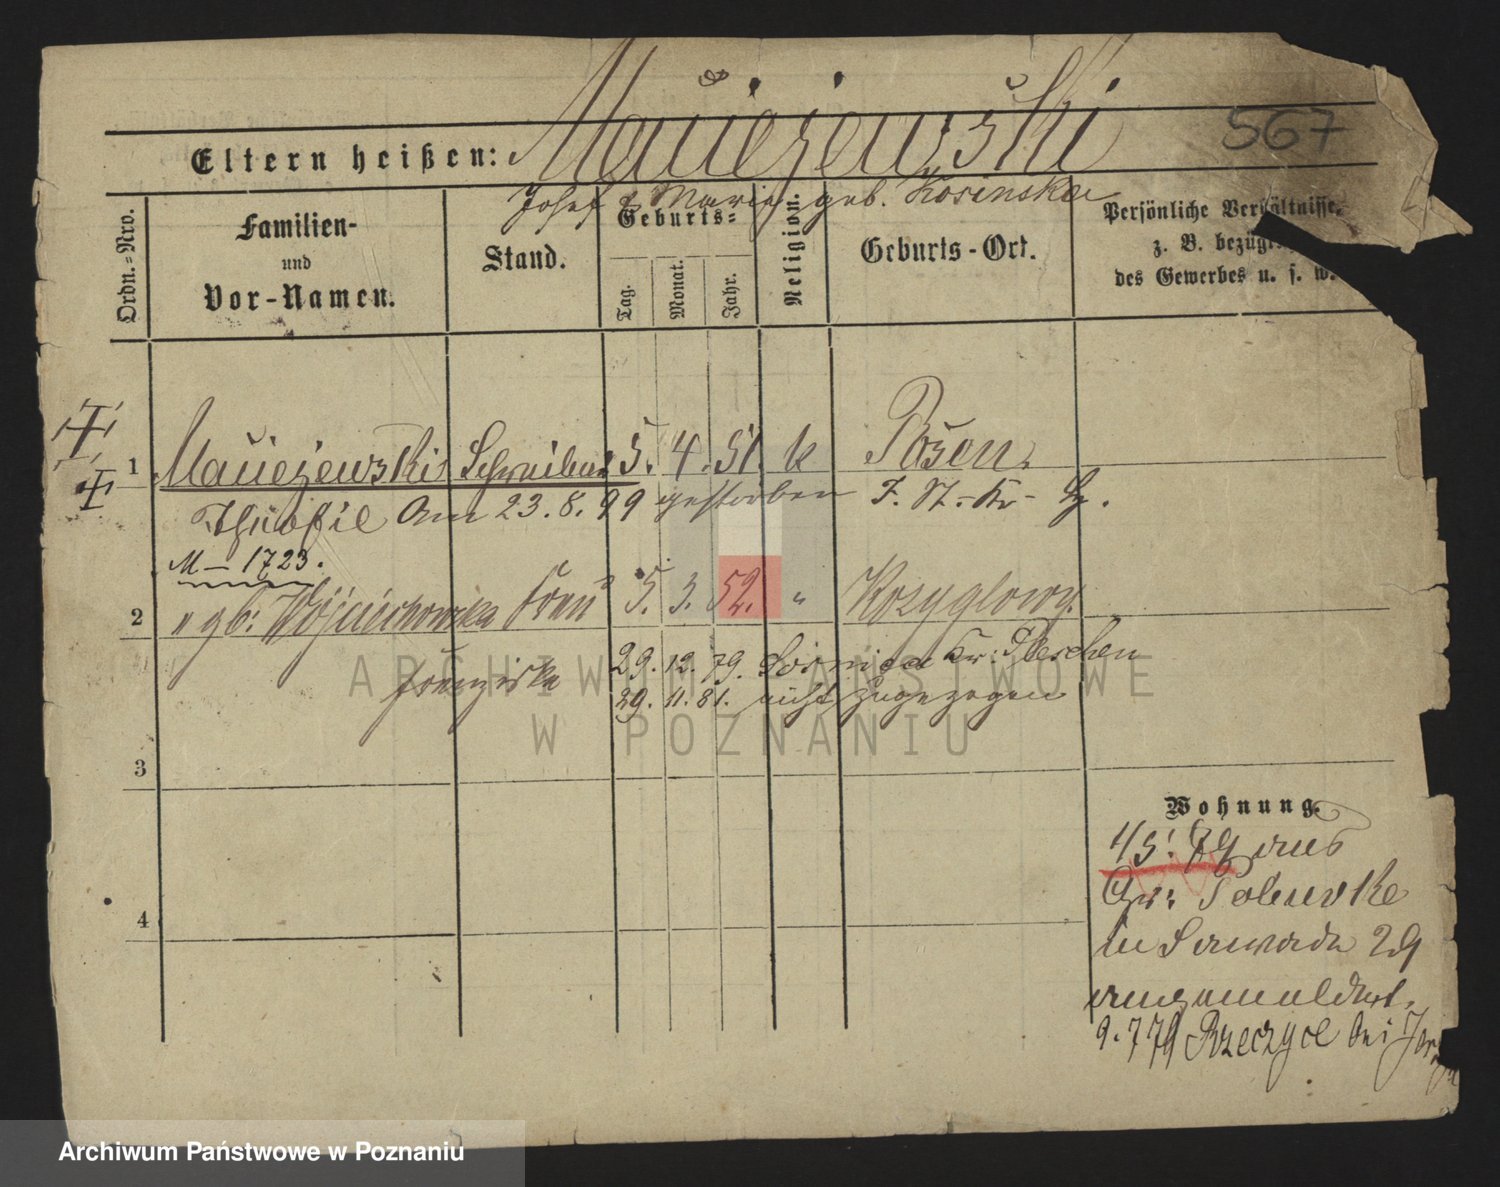 Maciejewski
567
Eltern heißen:
Josef & Marie geb. Kosinska
Ordn.=Nro.
Familien-
und
Vor-Namen.
Stand.
Geburts=
Tag.
Monat.
Jahr.
Religion.
Geburts-Ort.
Persönliche Verhältnisse,
z. B. bezügl
des Gewerbes u. s. w.
1 Maciejewski Schreiber 5. 4. 51. k Posen.
Theofil Am 23.8.99 gestorben
M – 1723.
2 " gb: Wojciechowska Frau 5. 3. 52. " Kozyglowy.
Franziska 29. 12. 79. Kr: Pleschen
29. 11. 81. nicht zugezogen
3
4
Wohnung.
1/5. 79 aus
in 29
angemeldet.
9.7 79 Rzeczyce bei
ARCHIWUM PAŃSTWOWE
W POZNANIU
Archiwum Państwowe w Poznaniu